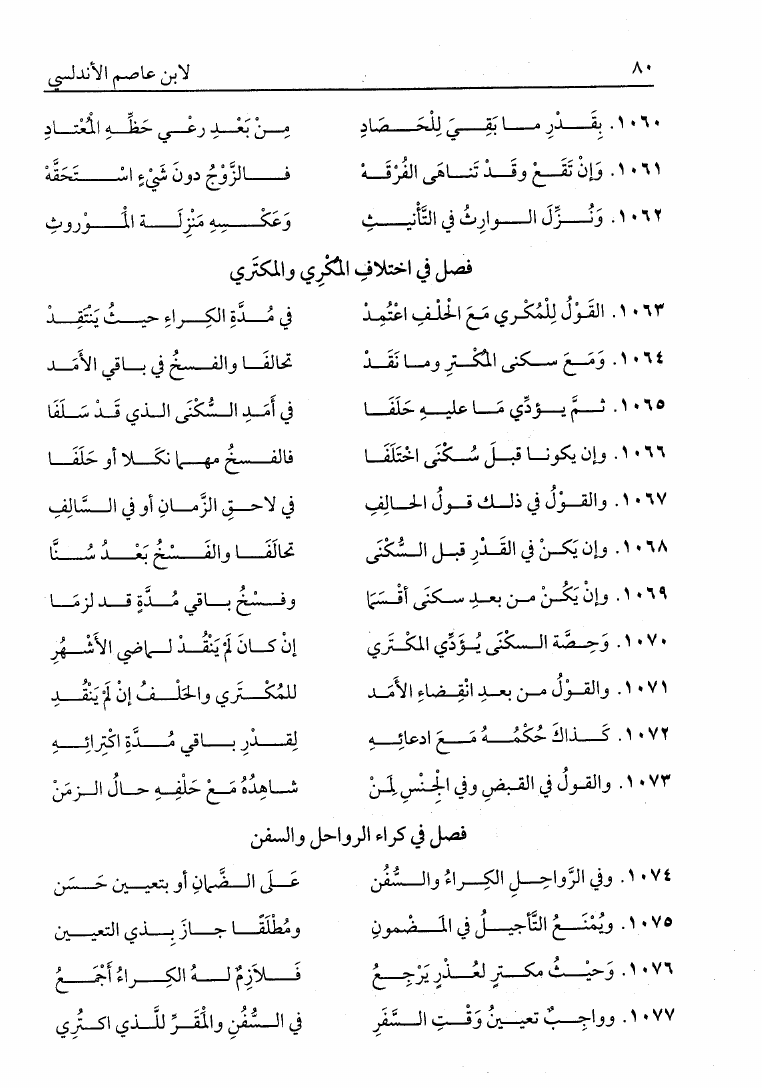 ٨٠ لابن عاصم الأندلسي
١٠٦٠. بِقَدْرِ مـا بَقِـيَ لِلْحَـصَادِ مِـنْ بَعْـدِ رعْـي حَظِّـهِ المُعْتـادِ
١٠٦١. وَإنْ تَقَـعْ وقَـدْ تَنـاهَى الفُرْقَـهْ فـالزَّوْجُ دونَ شَيْءٍ اسْـتَحَقَّهْ
١٠٦٢. وَنُـزِّلَ الـوارِثُ في التَّأْنيـثِ وَعَكْـسِهِ مَنْزِلَـةَ المَـوْروثِ
فصل في اختلافِ المُكْرِي والمكتَري
١٠٦٣. القَوْلُ لِلْمُكْـري مَـعَ الحَْلْفِ اعْتُمِـدْ في مُـدَّةِ الكِـراءِ حيـثُ يَنْتَقِـدْ
١٠٦٤. وَمَـعَ سـكنى المُكْـترِ ومـا نَقَـدْ تحالَفَـا والفـسْخُ في بـاقي الأمَـد
١٠٦٥. ثـمَّ يـؤَدِّي مَـا عليـهِ حَلَفَـا في أمَـدِ الـسُّكْنَى الـذي قَـدْ سَـلَفَا
١٠٦٦. وإن يكونـا قبـلَ سُـكْنَى اخْتَلَفَـا فالفـسخُ مهـما نكَـلا أو حَلَفَـا
١٠٦٧. والقـوْلُ في ذلـك قـولُ الحـالِفِ في لاحـقِ الزَّمـانِ أو في الـسَّالِفِ
١٠٦٨. وإن يَكـنْ في القَـدْرِ قبـل الـسُّكْنَى تحالَفَـا والفَـسْخُ بَعْـدُ سُـنَّا
١٠٦٩. وإنْ يَكُـنْ مـن بعـدِ سـكنى أقْسَمَا وفـسْخُ بـاقي مُـدَّةٍ قـد لزمَـا
١٠٧٠. وَحِصَّة الـسكنَى يُـؤَدِّي المكْتَري إنْ كـانَ لَمْ يَنْقُـدْ لـماضي الأَشْـهُرِ
١٠٧١. والقـوْلُ مـن بعـدِ انْقِـضاءِ الأمَـد للمُكْـتَري والحَْلْـفُ إنْ لَمْ يَنْقُـدِ
١٠٧٢. كَـذاكَ حُكْمُـهُ مَـعَ ادعائِـهِ لِقـدْرِ بـاقي مُـدَّةِ اكْتِرائِـهِ
١٠٧٣. والقولُ في القـبضِ وفي الجِنْسِ لمَنْ شـاهِدُهُ مَـعْ حَلْفِـهِ حـالُ الـزمَنْ
فصل في كراء الرواحل والسفن
١٠٧٤. وفي الرَّواحِـلِ الكِـراءُ والـسُّفُن عَـلَى الـضَّمانِ أو بتعيـين حَـسَن
١٠٧٥. ويُمْنَـعُ التَّأجيـلُ في المَـضْمونِ ومُطْلَقًـا جـازَ بـذي التعيـين
١٠٧٦. وَحَيْـثُ مكـترٍ لعُـذْرٍ يَرْجِـعُ فَـلازِمٌ لَـهُ الكِـراءُ أَجْمَـعُ
١٠٧٧. وواجِـبٌ تعيـينُ وَقْـتِ الـسَّفَرِ في السُّفْنِ والمقَرِّ للَّـذي اكـتُرِي